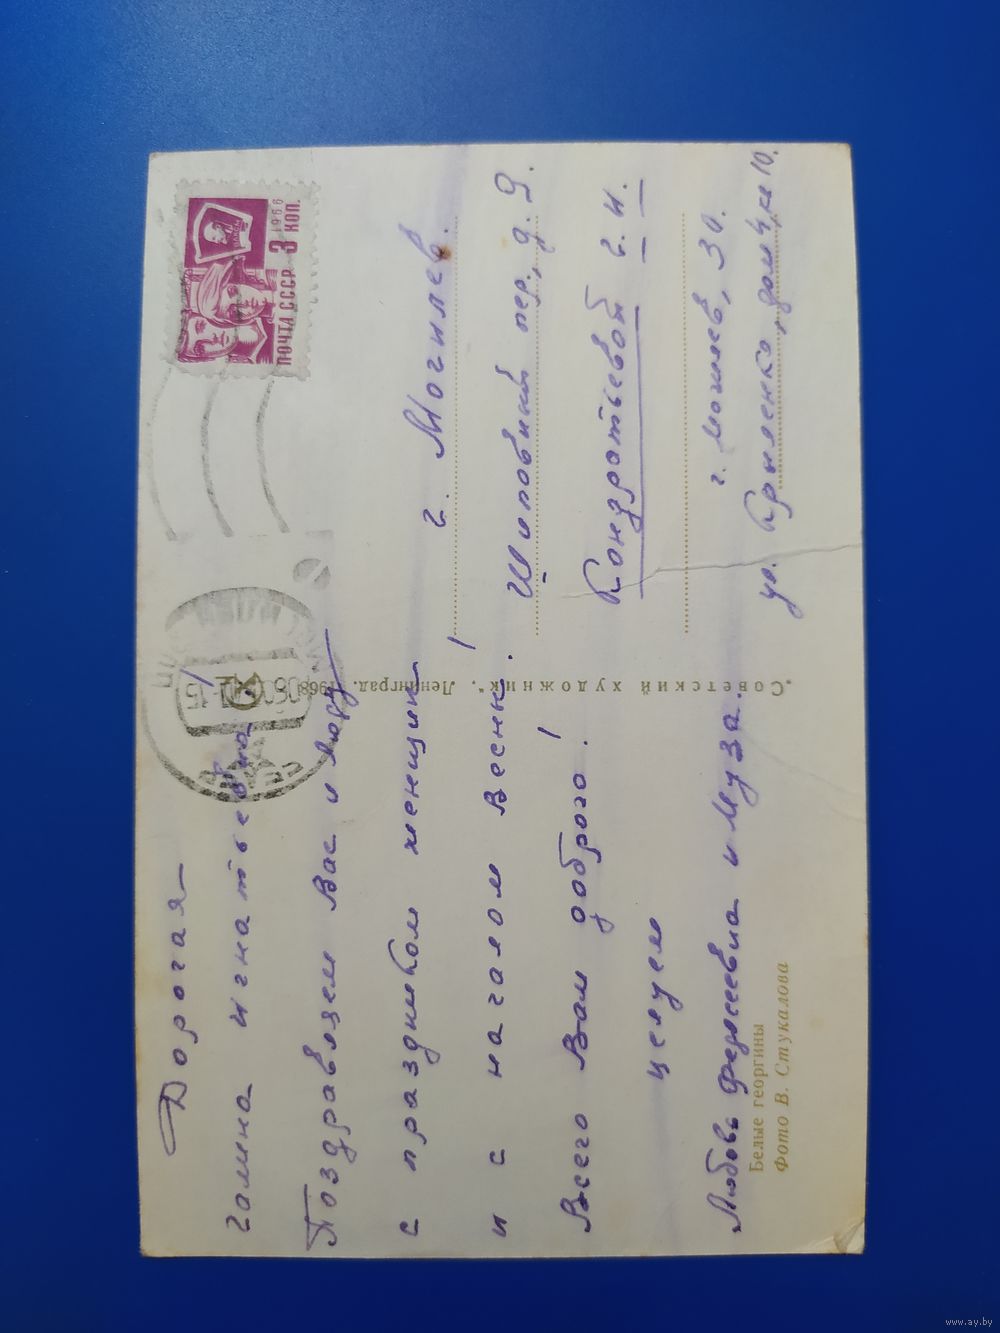 Дорогая
галина игнатьевна
Поздравляем Вас и Люду
с праздником женщин
и с началом весны!
Всего Вам доброго!
целуем
Любовь и Муза.
Белые георгины
Фото В. Стукалова
„Советский художник". Ленинград. 1968
ПОЧТА СССР 3 КОП.
1966
г. Могилев.
пер., д. 9.
Кондратьевой г. и.
г. Могилев, 30.
ул. Крыленко, дом 4, кв 10.
www.ay.by